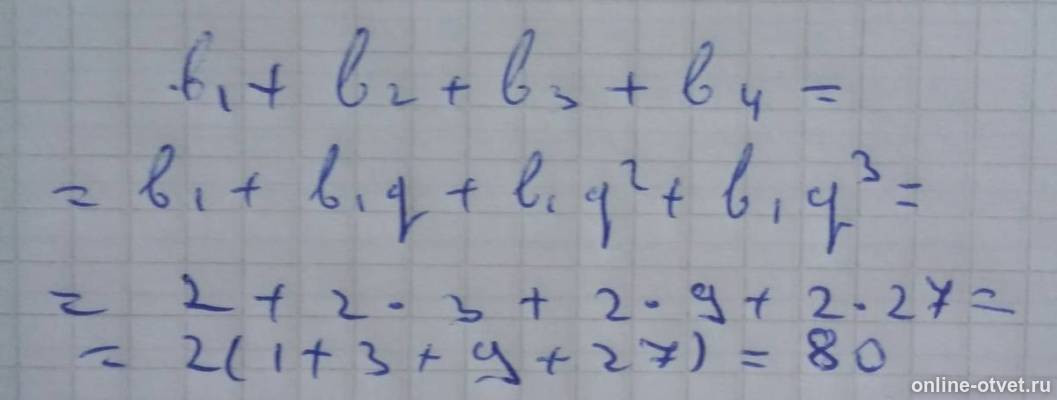 b₁ + b₂ + b₃ + b₄ =
= b₁ + b₁q + b₁q² + b₁q³ =
= 2 + 2·3 + 2·9 + 2·27 =
= 2(1+3+9+27) = 80
online-otvet.ru